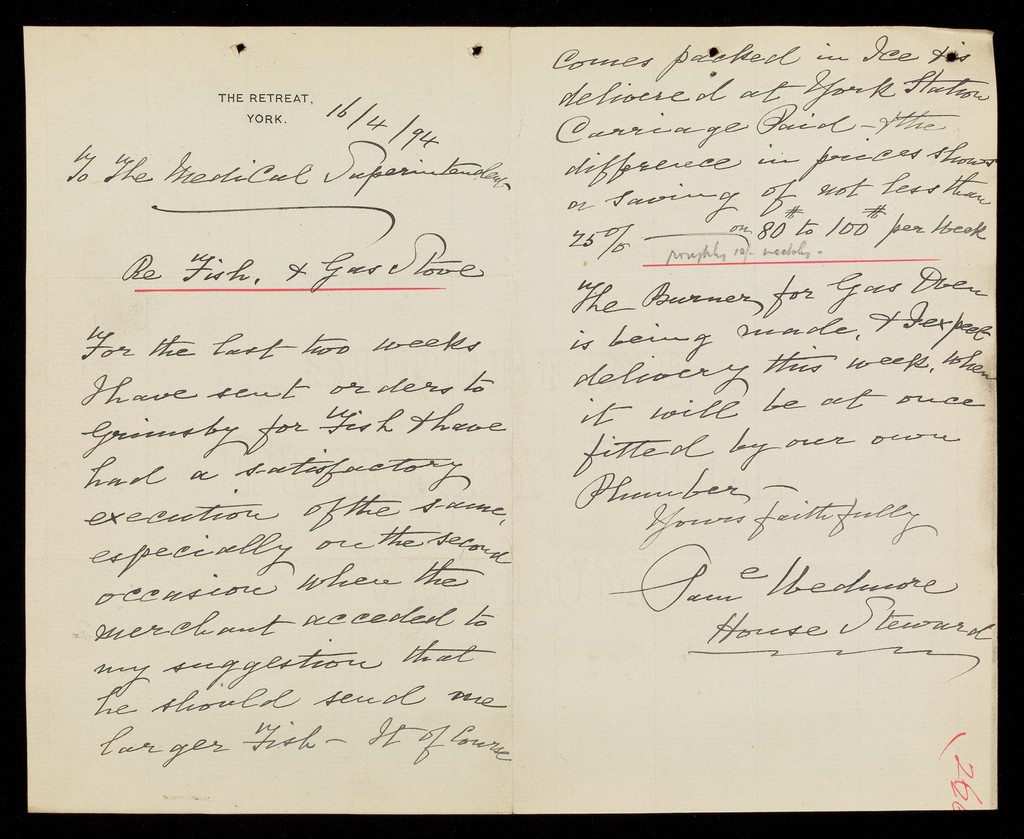 THE RETREAT,
YORK.
16/4/94
To The Medical Superintendent
Re Fish, & Gas Stove
For the last two weeks
I have sent orders to
Grimsby for Fish & have
had a satisfactory
execution of the same,
especially on the second
occasion when the
merchant acceded to
my suggestion that
he should send me
larger Fish – It of Course
comes packed in Ice & is
delivered at York Station
Carriage Paid – & the
difference in prices shows
a saving of not less than
25% on 80# to 100# per Week
roughly 10/- weekly.
The Burner for Gas Oven
is being made, & I expect
delivery this week, when
it will be at once
fitted by our own
Plumber –
Yours faithfully
Wedmore
House Steward